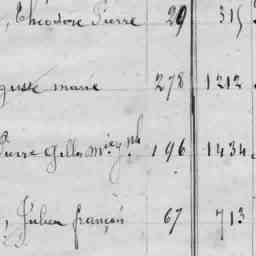 , Théodore Pierre 29 315
guste marie 278 1212
Pierre Gilles M.ie J.ph 196 1434
, Julien françois 67 713